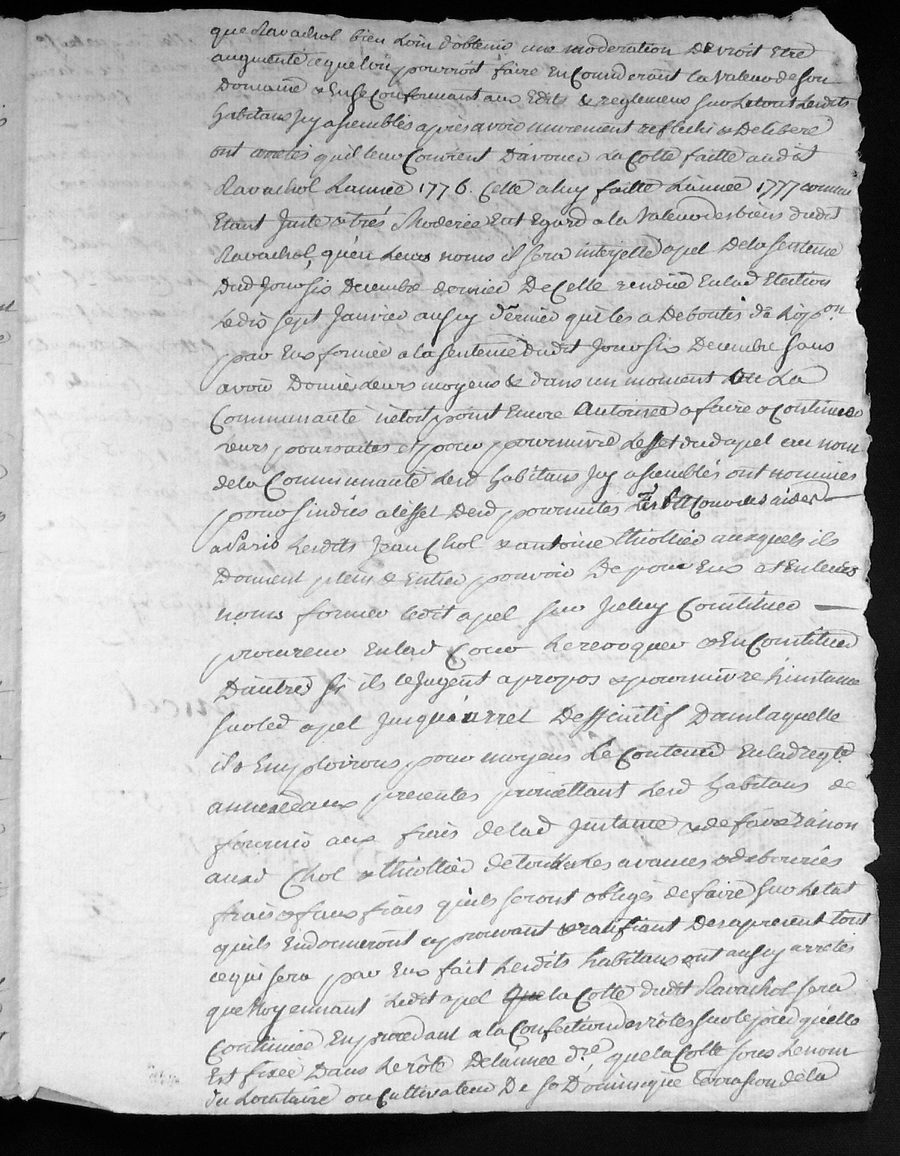 que Ravachol bien loin d'obtenir une moderation Devroit Etre
augmenté ce que l'on pourroit faire En Considerant la Valeur de son
Domaine & En se Conformant aux Edits & reglemens sur le tout Lesdits
habitans Jcy assemblés apres avoir murement reflechi & Deliberé
ont arretés qu'il leur Convient D'avouer La Cotte faitte audit
Ravachol L'année 1776. Celle a luy faitte L'année 1777 comme
Etant Juste & trés Moderée Eut Egard a la Valeur des biens dudit
Ravachol, qu'en Leurs noms il sera interjetté apel De la sentence
Dud Jour six Decembre dernier De Celle rendue En lad Election
Le dix sept Janvier aussy dernier qui les a Deboutés de L'opp.on
par Eux formée a la sentence Dudit Jour six Decembre sans
avoir Donné Leurs moyens & dans un moment ou La
Communauté n'etoit point Encore Autorisée a faire & Continuer
leurs poursuites et pour poursuivre L'effet dud apel au nom
de la Communauté Lesd habitans Jcy assemblés ont nommés
pour sindics a l'effet Desd poursuites Cour des aides
a Paris Lesdits Jean Chol & antoine thiollier auxquels ils
Donnent plein & Entier pouvoir De pour Eux & En leurs
noms former ledit apel sur Jceluy Constituer
procureur En lad Cour Le revoquer & En Constituer
D'autres s'ils le Jugent a propos & poursuivre L'instance
sur led apel Jusqu'a arret Deffinitif Dans laquelle
ils Employeront pour moyens Le Contenu En lad req.te
annexée aux presentes promettant Lesd habitans de
fournir aux frais de lad Jnstance & de faire raison
auxd Chol & thiollier de toutes Les avances & debourcés
frais & faux frais qu'ils seront obligés de faire sur L'etat
qu'ils En donneront aprouvant & ratifiant Des a present tout
ce qui sera par Eux fait Lesdits habitans ont aussy arretés
que Moyennant Ledit apel la Cotte dudit Ravachol sera
Continuée En procedant a la Confection des rôles sur le pied qu'elle
Est fixée Dans Le rôle De L'année d.re que la Cotte sous Le nom
du Locataire ou Cultivateur De Sr Dominique terrasson de la